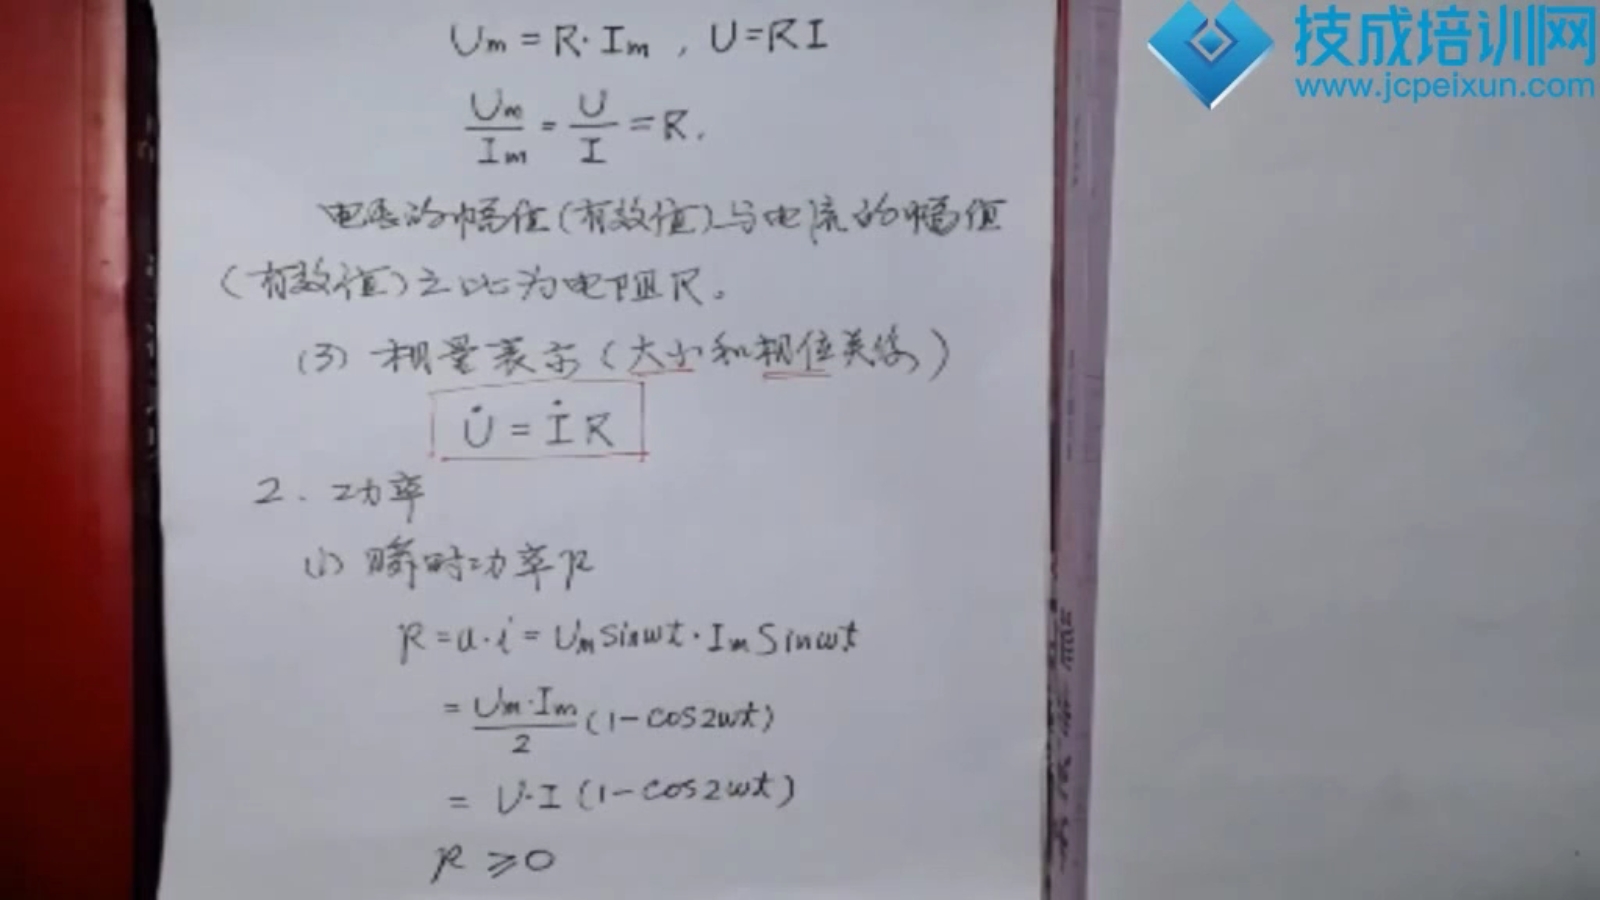 技成培训网
www.jcpeixun.com
Um = R·Im , U=RI
Um/Im = U/I = R.
电压的幅值(有效值)与电流的幅值
(有效值)之比为电阻R。
(3) 相量表示(大小和相位关系)
U̇ = İ R
2. 功率
(1) 瞬时功率p
p = u·i = Um sinωt · Im Sinωt
= Um·Im/2 (1-cos2ωt)
= U·I (1-cos2ωt)
p ≥0